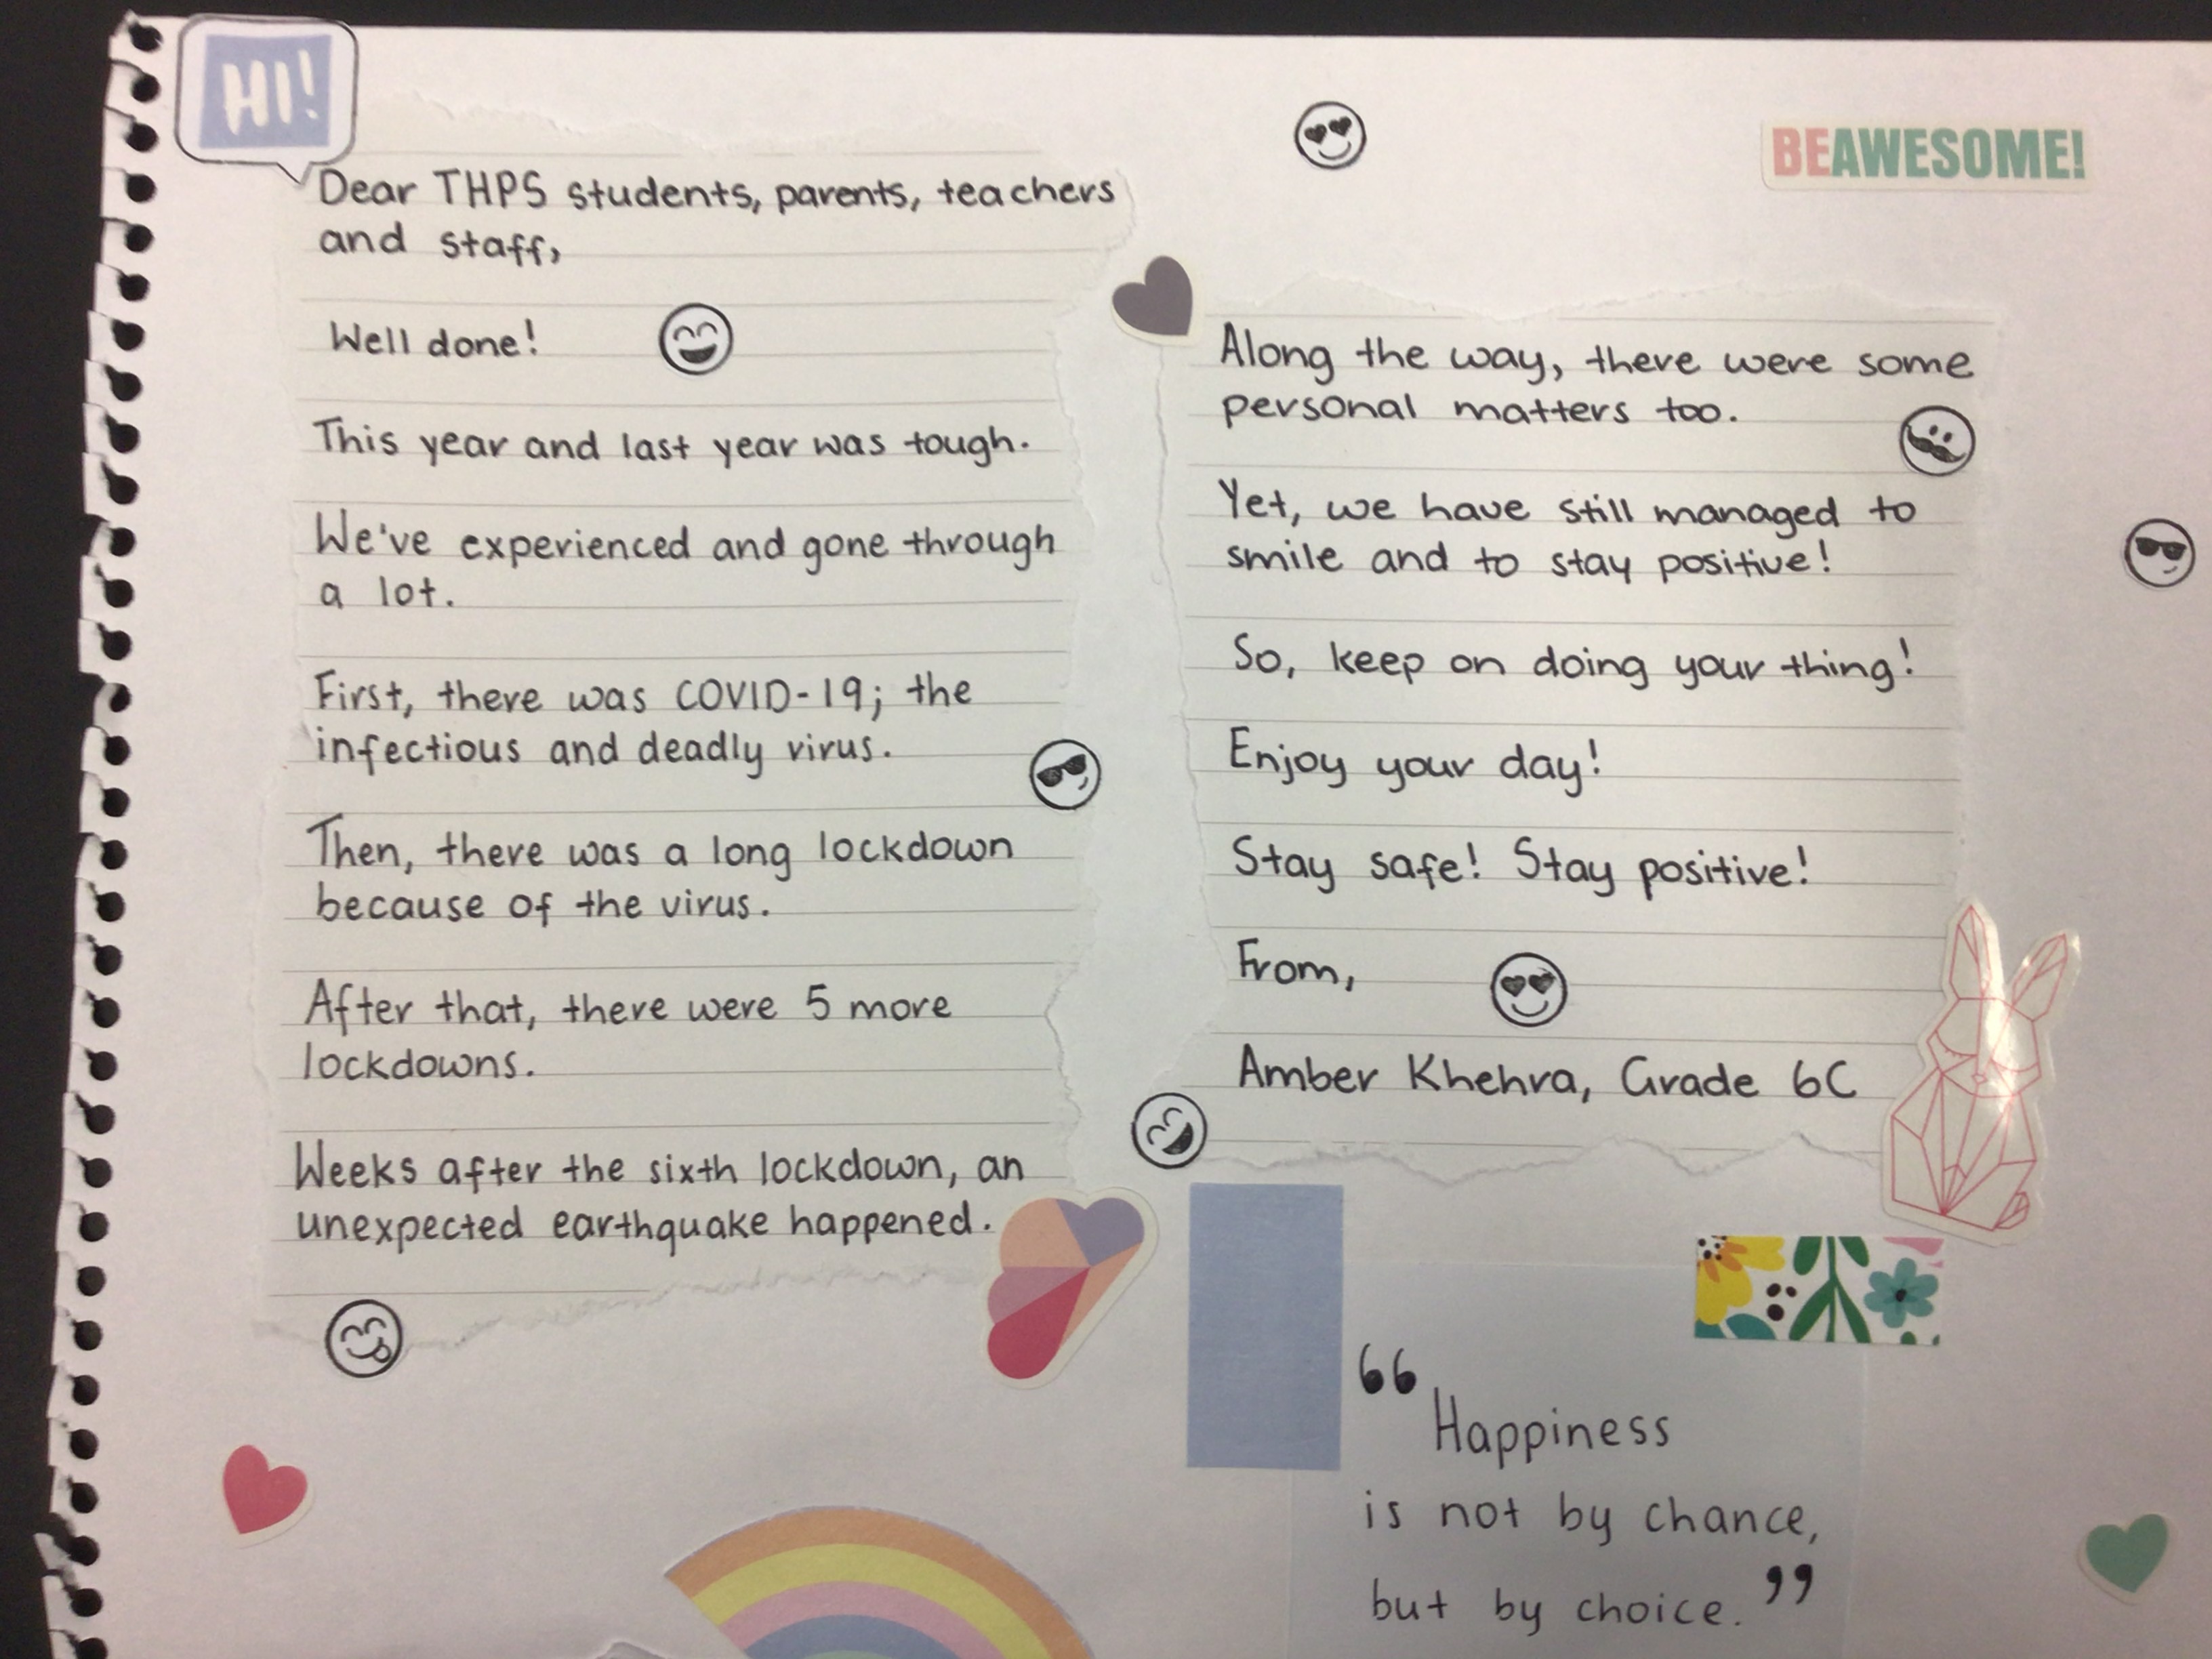 HI!
BEAWESOME!
Dear THPS students, parents, teachers
and staff,
Well done!
This year and last year was tough.
We've experienced and gone through
a lot.
First, there was COVID-19; the
infectious and deadly virus.
Then, there was a long lockdown
because of the virus.
After that, there were 5 more
lockdowns.
Weeks after the sixth lockdown, an
unexpected earthquake happened.
Along the way, there were some
personal matters too.
Yet, we have still managed to
smile and to stay positive!
So, keep on doing your thing!
Enjoy your day!
Stay safe! Stay positive!
From,
Amber Khehra, Grade 6C
“Happiness
is not by chance,
but by choice.”